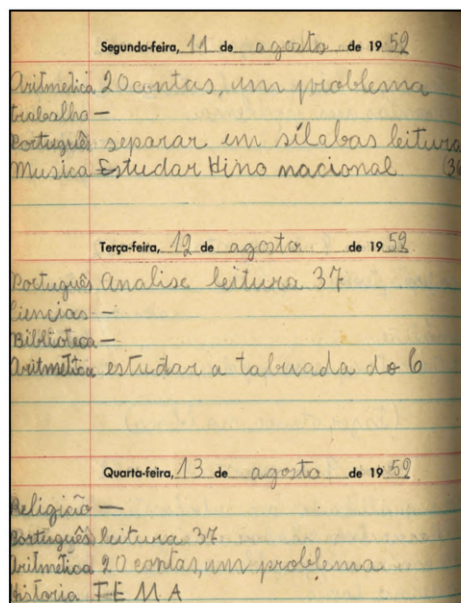 Segunda-feira, 11 de agosto de 19 52
Aritmetica 20 contas, um problema
trabalho —
Português separar em sílabas leitura
Musica Estudar Hino nacional (36
Terça-feira, 12 de agosto de 19 52
Português Analise leitura 37
Ciencias —
Biblioteca —
Aritmetica estudar a tabuada do 6
Quarta-feira, 13 de agosto de 19 52
Religião —
Português leitura 37
Aritmetica 20 contas, um problema
Historia T E M A